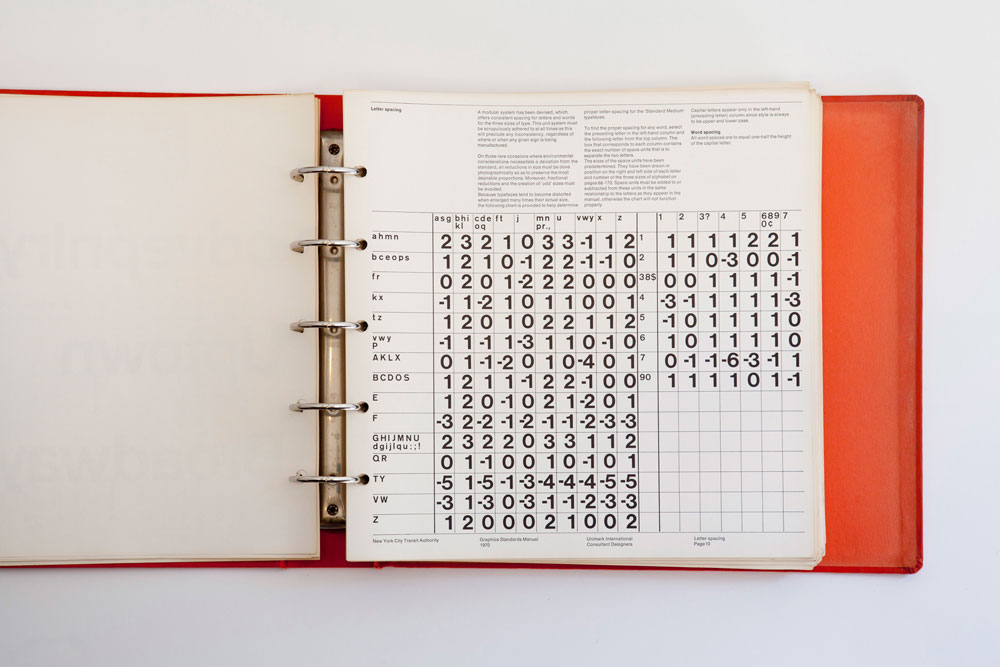 Letter spacing
A modular system has been devised, which
offers consistent spacing for letters and words
for the three sizes of type. This unit system must
be scrupulously adhered to at all times as this
will preclude any inconsistency, regardless of
where or when any given sign is being
manufactured.
On those rare occasions where environmental
considerations necessitate a deviation from the
standard, all reductions in size must be done
photographically so as to preserve the most
desirable proportions. Moreover, fractional
reductions and the creation of 'odd' sizes must
be avoided.
Because typefaces tend to become distorted
when enlarged many times their actual size,
the following chart is provided to help determine
proper letter-spacing for the 'Standard Medium'
typefaces.
To find the proper spacing for any word, select
the preceding letter in the left-hand column and
the following letter from the top column. The
box that corresponds to each column contains
the exact number of space units that is to
separate the two letters.
The sizes of the space units have been
predetermined. They have been drawn in
position on the right and left side of each letter
and number of the three sizes of alphabet on
pages 66-170. Space units must be added to or
subtracted from these units in the same
relationship to the letters as they appear in the
manual, otherwise the chart will not function
properly.
Capital letters appear only in the left-hand
(preceding letter) column since style is always
to be upper and lower case
Word spacing
All word spaces are to equal one-half the height
of the capital letter.
asg bhi cde ft j mn u vwy x z 1 2 3? 4 5 689 7
kl oq pr., 0¢
ahmn 2 3 2 1 0 3 3 -1 1 2 1 1 1 1 1 2 2 1
bceops 1 2 1 0 -1 2 2 -1 -1 0 2 1 1 0 -3 0 0 -1
fr 0 2 0 1 -2 2 2 0 0 0 38$ 0 0 1 1 1 1 -1
kx -1 1 -2 1 0 1 1 0 0 1 4 -3 -1 1 1 1 1 -3
tz 1 2 0 1 0 2 2 1 1 2 5 -1 0 1 1 1 1 0
vwy
P -1 1 -1 1 -3 1 1 0 -1 0 6 1 0 1 1 1 1 0
AKLX 0 1 -1 -2 0 1 0 -4 0 1 7 0 -1 -1 -6 -3 -1 1
BCDOS 1 2 1 1 -1 2 2 -1 0 0 90 1 1 1 1 0 1 -1
E 1 2 0 -1 0 2 1 -2 0 1
F -3 2 -2 -1 -2 -1 -1 -2 -3 -3
GHIJMNU
dgijlqu:;! 2 3 2 2 0 3 3 1 1 2
QR 0 1 -1 0 0 1 0 -1 0 1
TY -5 1 -5 -1 -3 -4 -4 -4 -5 -5
VW -3 1 -3 0 -3 -1 -1 -2 -3 -3
Z 1 2 0 0 0 2 1 0 0 2
New York City Transit Authority
Graphics Standards Manual
1970
Unimark International
Consultant Designers
Letter spacing
Page 10